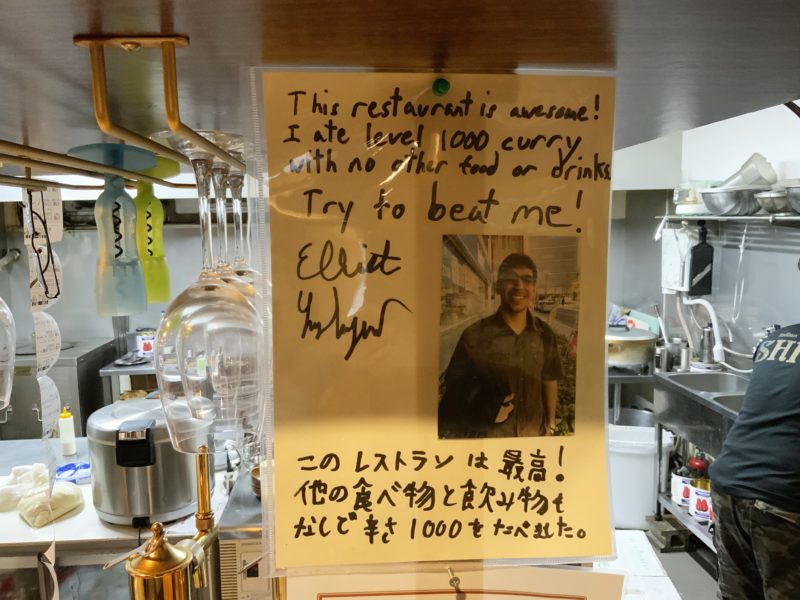 This restaurant is awesome!
I ate level 1000 curry
with no other food or drinks.
Try to beat me!
Elliott
このレストランは最高!
他の食べ物と飲み物も
なしで辛さ1000をたべました。
SHI